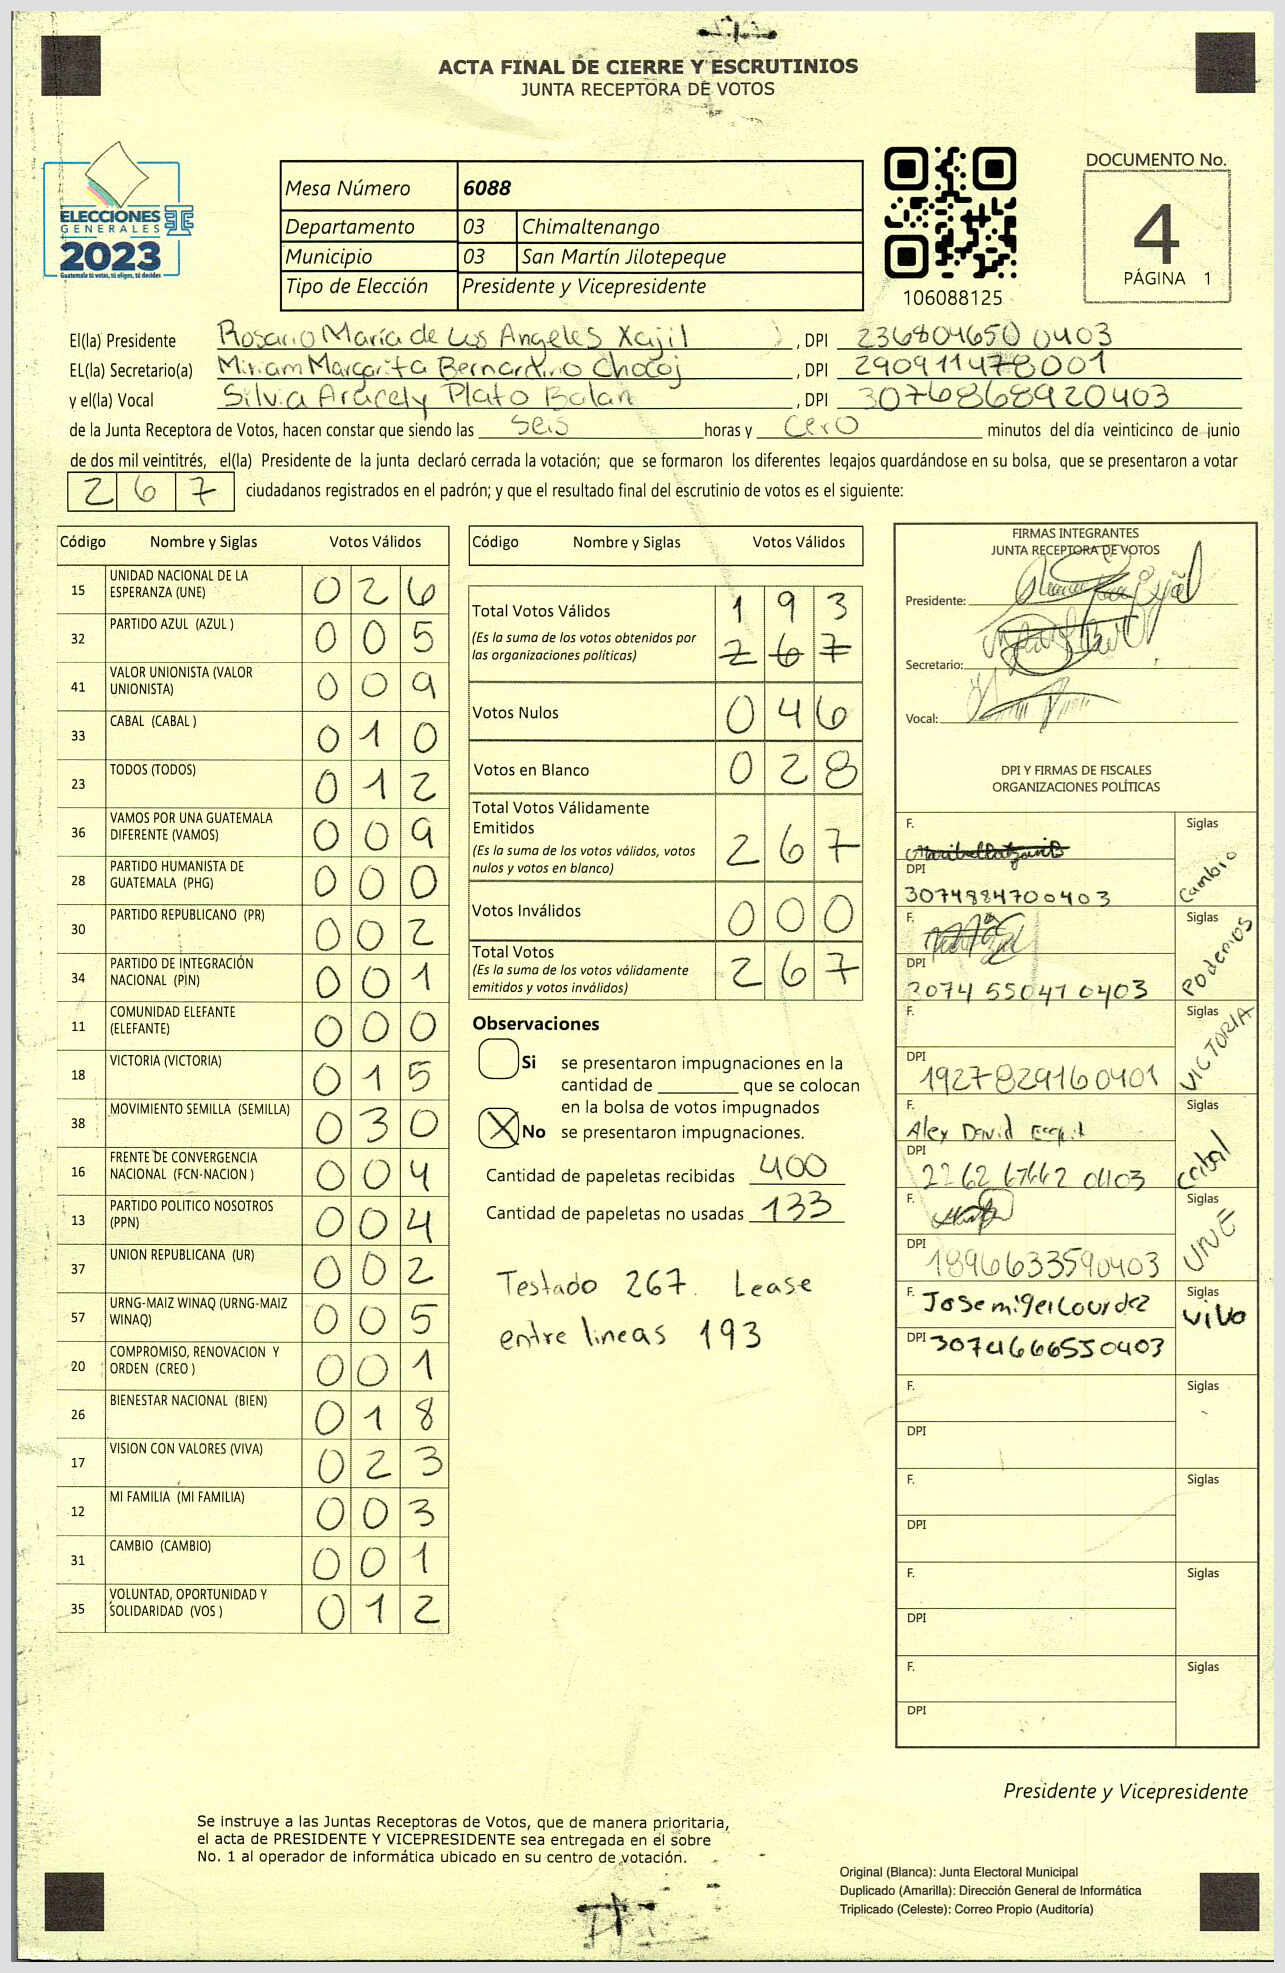 ACTA FINAL DE CIERRE Y ESCRUTINIOS
JUNTA RECEPTORA DE VOTOS
ELECCIONES
GENERALES
2023
Guatemala tú votas, tú eliges, tú decides
Mesa Número 6088
Departamento 03 Chimaltenango
Municipio 03 San Martín Jilotepeque
Tipo de Elección Presidente y Vicepresidente
106088125
DOCUMENTO No.
4
PÁGINA 1
El(la) Presidente Rosario María de Los Angeles Xajil , DPI 236804650 0403
EL(la) Secretario(a) Miriam Margarita Bernardino Chocoj , DPI 290911478001
y el(la) Vocal Silvia Aracely Plato Balan , DPI 3076868920403
de la Junta Receptora de Votos, hacen constar que siendo las seis horas y cero minutos del día veinticinco de junio
de dos mil veintitrés, el(la) Presidente de la junta declaró cerrada la votación; que se formaron los diferentes legajos quardándose en su bolsa, que se presentaron a votar
267 ciudadanos registrados en el padrón; y que el resultado final del escrutinio de votos es el siguiente:
Código Nombre y Siglas Votos Válidos
15 UNIDAD NACIONAL DE LA ESPERANZA (UNE) 026
32 PARTIDO AZUL (AZUL ) 005
41 VALOR UNIONISTA (VALOR UNIONISTA) 009
33 CABAL (CABAL ) 010
23 TODOS (TODOS) 012
36 VAMOS POR UNA GUATEMALA DIFERENTE (VAMOS) 009
28 PARTIDO HUMANISTA DE GUATEMALA (PHG) 000
30 PARTIDO REPUBLICANO (PR) 002
34 PARTIDO DE INTEGRACIÓN NACIONAL (PIN) 001
11 COMUNIDAD ELEFANTE (ELEFANTE) 000
18 VICTORIA (VICTORIA) 015
38 MOVIMIENTO SEMILLA (SEMILLA) 030
16 FRENTE DE CONVERGENCIA NACIONAL (FCN-NACION ) 004
13 PARTIDO POLITICO NOSOTROS (PPN) 004
37 UNION REPUBLICANA (UR) 002
57 URNG-MAIZ WINAQ (URNG-MAIZ WINAQ) 005
20 COMPROMISO, RENOVACION Y ORDEN (CREO ) 001
26 BIENESTAR NACIONAL (BIEN) 018
17 VISION CON VALORES (VIVA) 023
12 MI FAMILIA (MI FAMILIA) 003
31 CAMBIO (CAMBIO) 001
35 VOLUNTAD, OPORTUNIDAD Y SOLIDARIDAD (VOS ) 012
Código Nombre y Siglas Votos Válidos
Total Votos Válidos 193
(Es la suma de los votos obtenidos por las organizaciones políticas) 267
Votos Nulos 046
Votos en Blanco 028
Total Votos Válidamente Emitidos
(Es la suma de los votos válidos, votos nulos y votos en blanco) 267
Votos Inválidos 000
Total Votos
(Es la suma de los votos válidamente emitidos y votos inválidos) 267
Observaciones
Si se presentaron impugnaciones en la
cantidad de ________ que se colocan
en la bolsa de votos impugnados
X No se presentaron impugnaciones.
Cantidad de papeletas recibidas 400
Cantidad de papeletas no usadas 133
Testado 267. Lease
entre lineas 193
FIRMAS INTEGRANTES
JUNTA RECEPTORA DE VOTOS
Presidente:
Secretario:
Vocal:
DPI Y FIRMAS DE FISCALES
ORGANIZACIONES POLÍTICAS
F. Siglas
DPI
3074984700403 Cambio
F. Siglas
DPI
3074 550410403 Podemos
F. Siglas
DPI
1927829160401 VICTORIA
F. Siglas
Alex David
DPI
2262 67662 0403 Cabal
F. Siglas
DPI
1896633590403 UNE
F. Jose miguel Lourdez Siglas
DPI 3074666550403 vivo
F. Siglas
DPI
F. Siglas
DPI
F. Siglas
DPI
F. Siglas
DPI
Presidente y Vicepresidente
Se instruye a las Juntas Receptoras de Votos, que de manera prioritaria,
el acta de PRESIDENTE Y VICEPRESIDENTE sea entregada en el sobre
No. 1 al operador de informática ubicado en su centro de votación.
Original (Blanca): Junta Electoral Municipal
Duplicado (Amarilla): Dirección General de Informática
Triplicado (Celeste): Correo Propio (Auditoría)